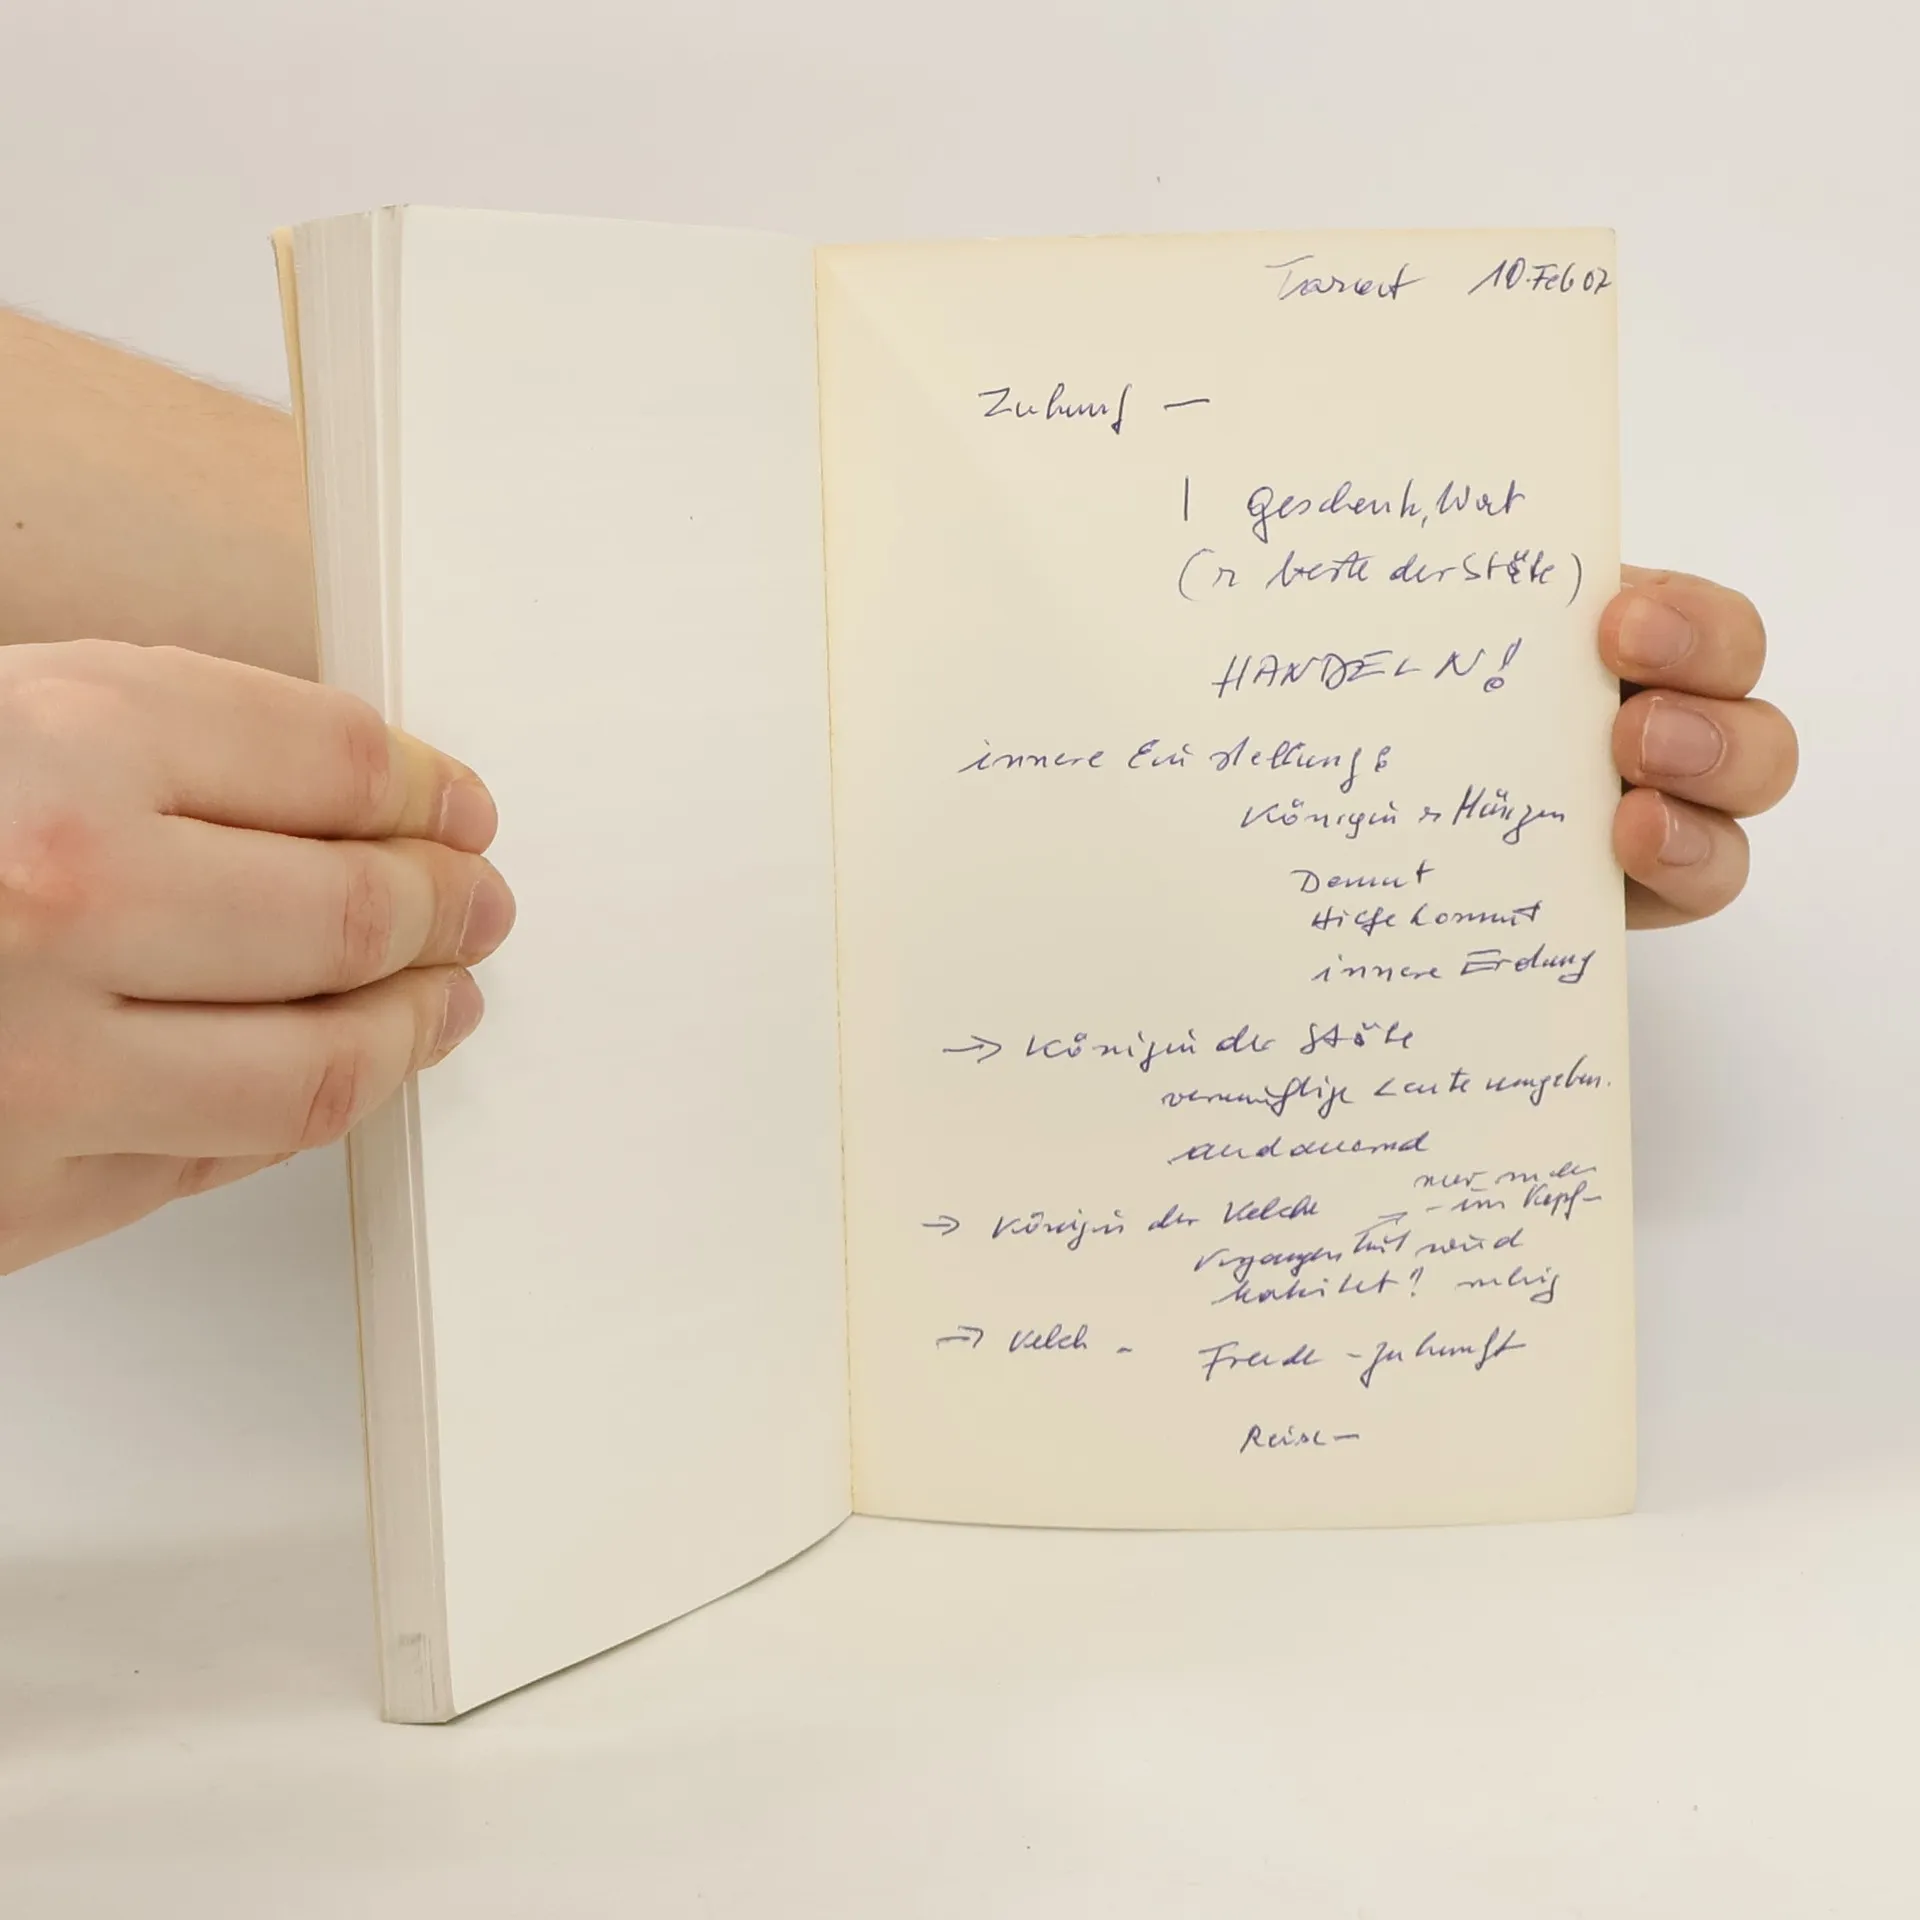 Tarot 10. Feb 07
Zukunf —
| Geschenk, Wert
( beste der Stäbe)
HANDELN!
innere Einstellung:
Königin Münzen
Demut
Hilfe kommt
innere Erdung
→ Königin der Stäbe
vernünftige Leute umgeben.
andauernd
nur
→ Königin der Kelche → - im Kopf -
Vergangenheit wird
ruhig
→ Kelch - Freude - Zukunft
Reise —